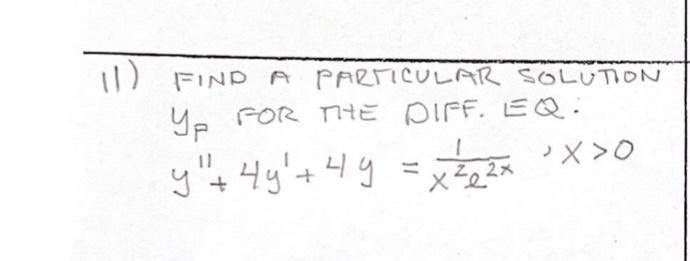 11) FIND A PARTICULAR SOLUTION
yp FOR THE DIFF. EQ:
y'' + 4y' + 4y = 1/(x²e^(2x)) , x > 0